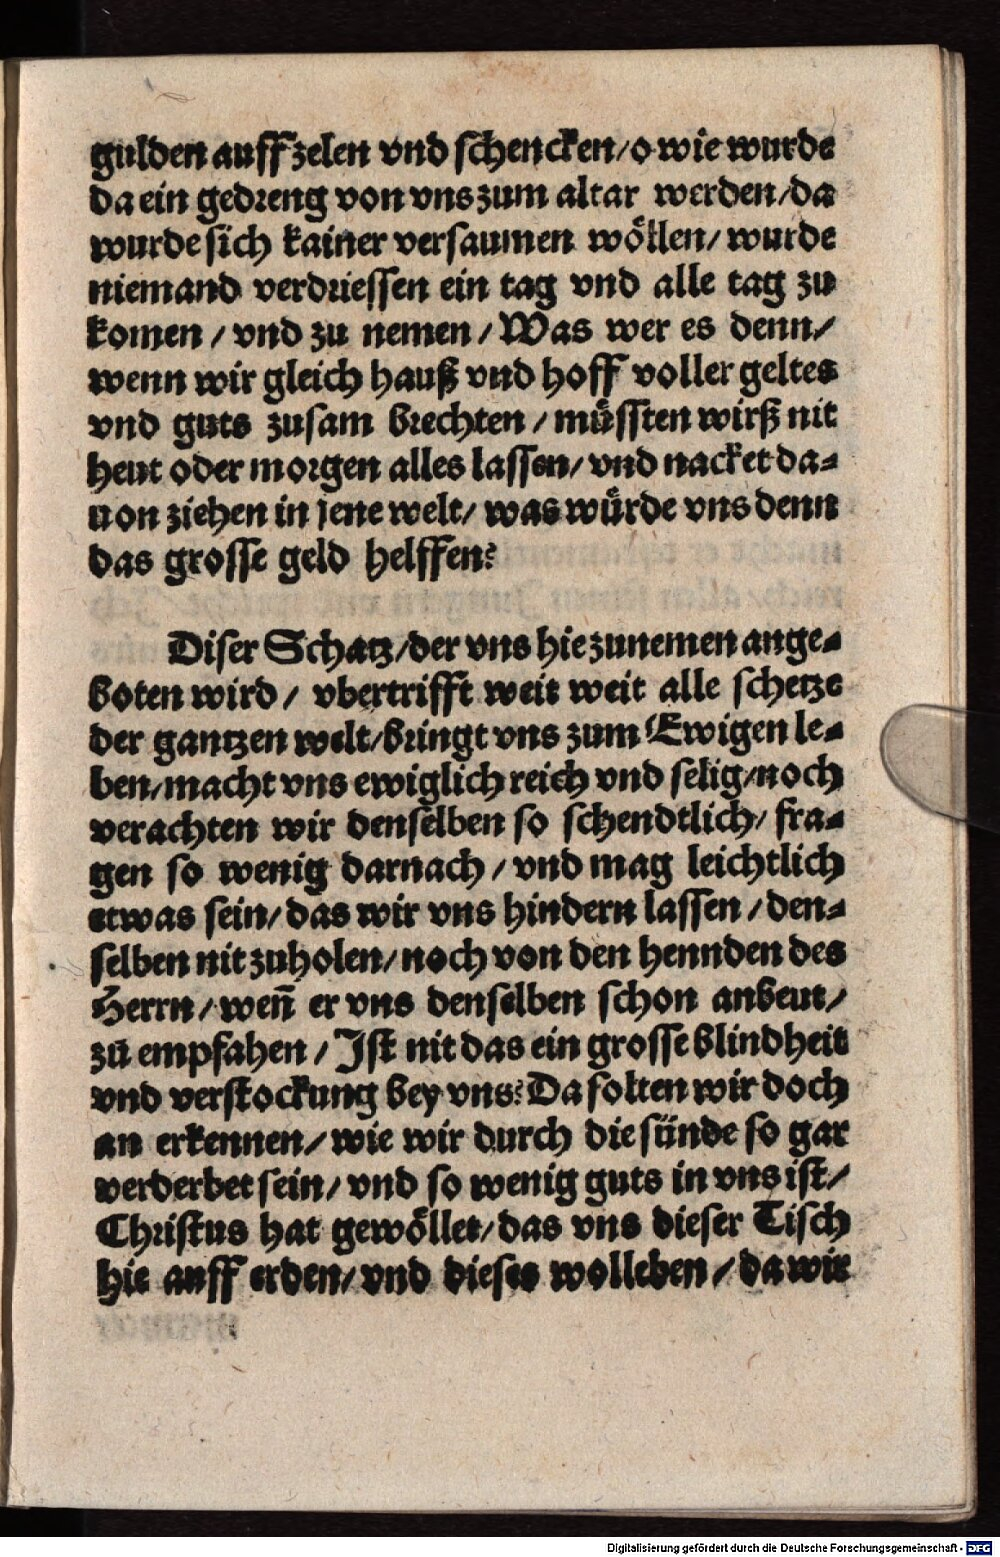 gulden auff zelen vnd schencken/ o wie wurde
da ein gedreng von vns zum altar werden/ da
wurde sich kainer versaumen wöllen/ wurde
niemand verdriessen ein tag vnd alle tag zu
komen / vnd zu nemen / Was wer es denn/
wenn wir gleich hauß vnd hoff voller geltes
vnd guts zusam brechten / müssten wirß nit
heut oder morgen alles lassen/ vnd nacket da-
uon ziehen in jene welt/ was würde vns denn
das grosse geld helffen?
Diser Schatz/ der vns hie zunemen ange-
boten wird / vbertrifft weit weit alle schetze
der gantzen welt/ bringt vns zum Ewigen le-
ben/ macht vns ewiglich reich vnd selig/ noch
verachten wir denselben so schendtlich/ fra-
gen so wenig darnach / vnd mag leichtlich
etwas sein/ das wir vns hindern lassen / den-
selben nit zuholen/ noch von den hennden des
Herrn / weñ er vns denselben schon anbeut/
zū empfahen / Ist nit das ein grosse blindheit
vnd verstockung bey vns? Da solten wir doch
an erkennen/ wie wir durch die sünde so gar
verderbet sein/ vnd so wenig guts in vns ist/
Christus hat gewöllet/ das vns dieser Tisch
hie auff erden/ vnd dieses wolleben / da wir
Digitalisierung gefördert durch die Deutsche Forschungsgemeinschaft - DFG